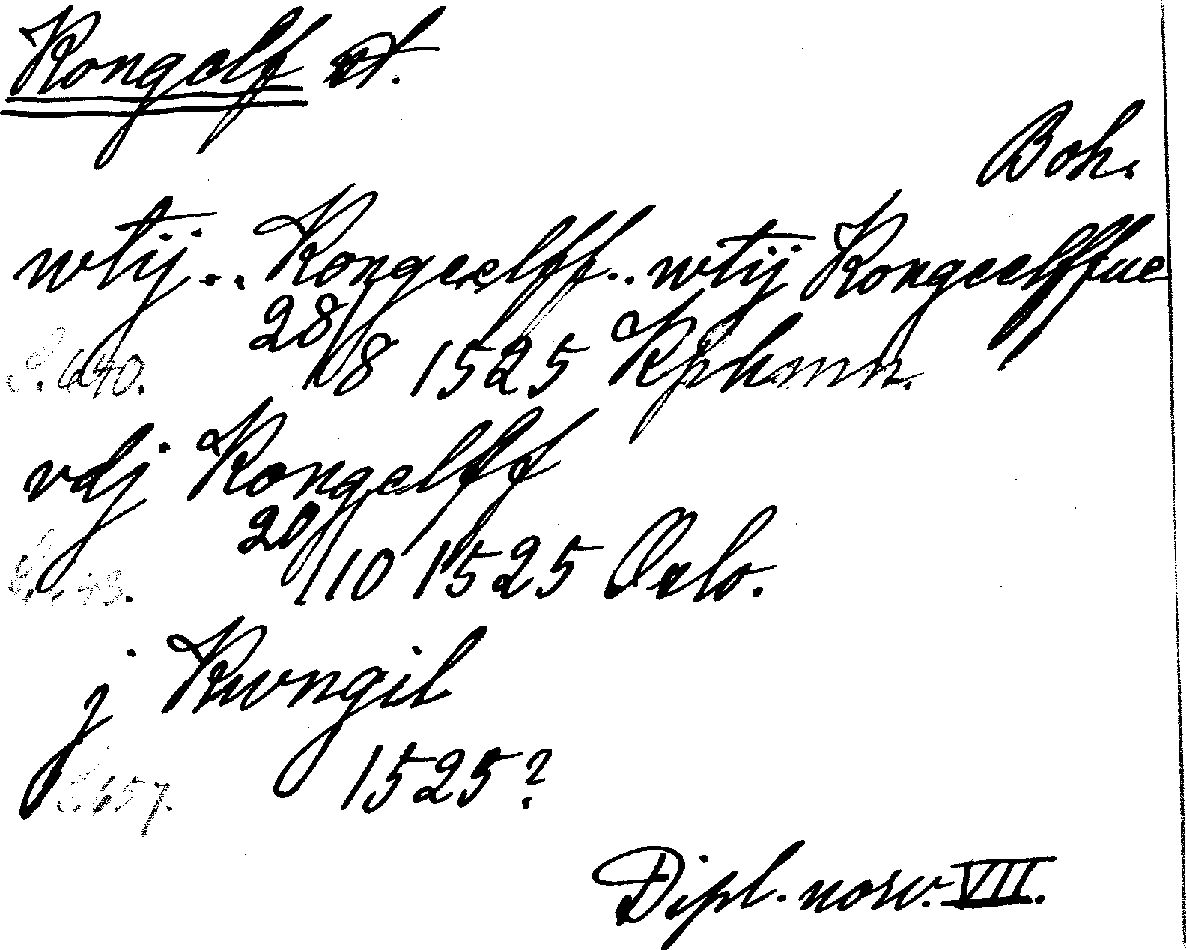 Kongelf st.
Boh.
wtij.. Kongeelff.. wtij Kongeelffue
28/8 1525 Kphmn.
S. 640.
vdj Kongelff
20/10 1525 Oslo.
j Kwngil
1525?
S. 657.
Dipl. norv. VII.